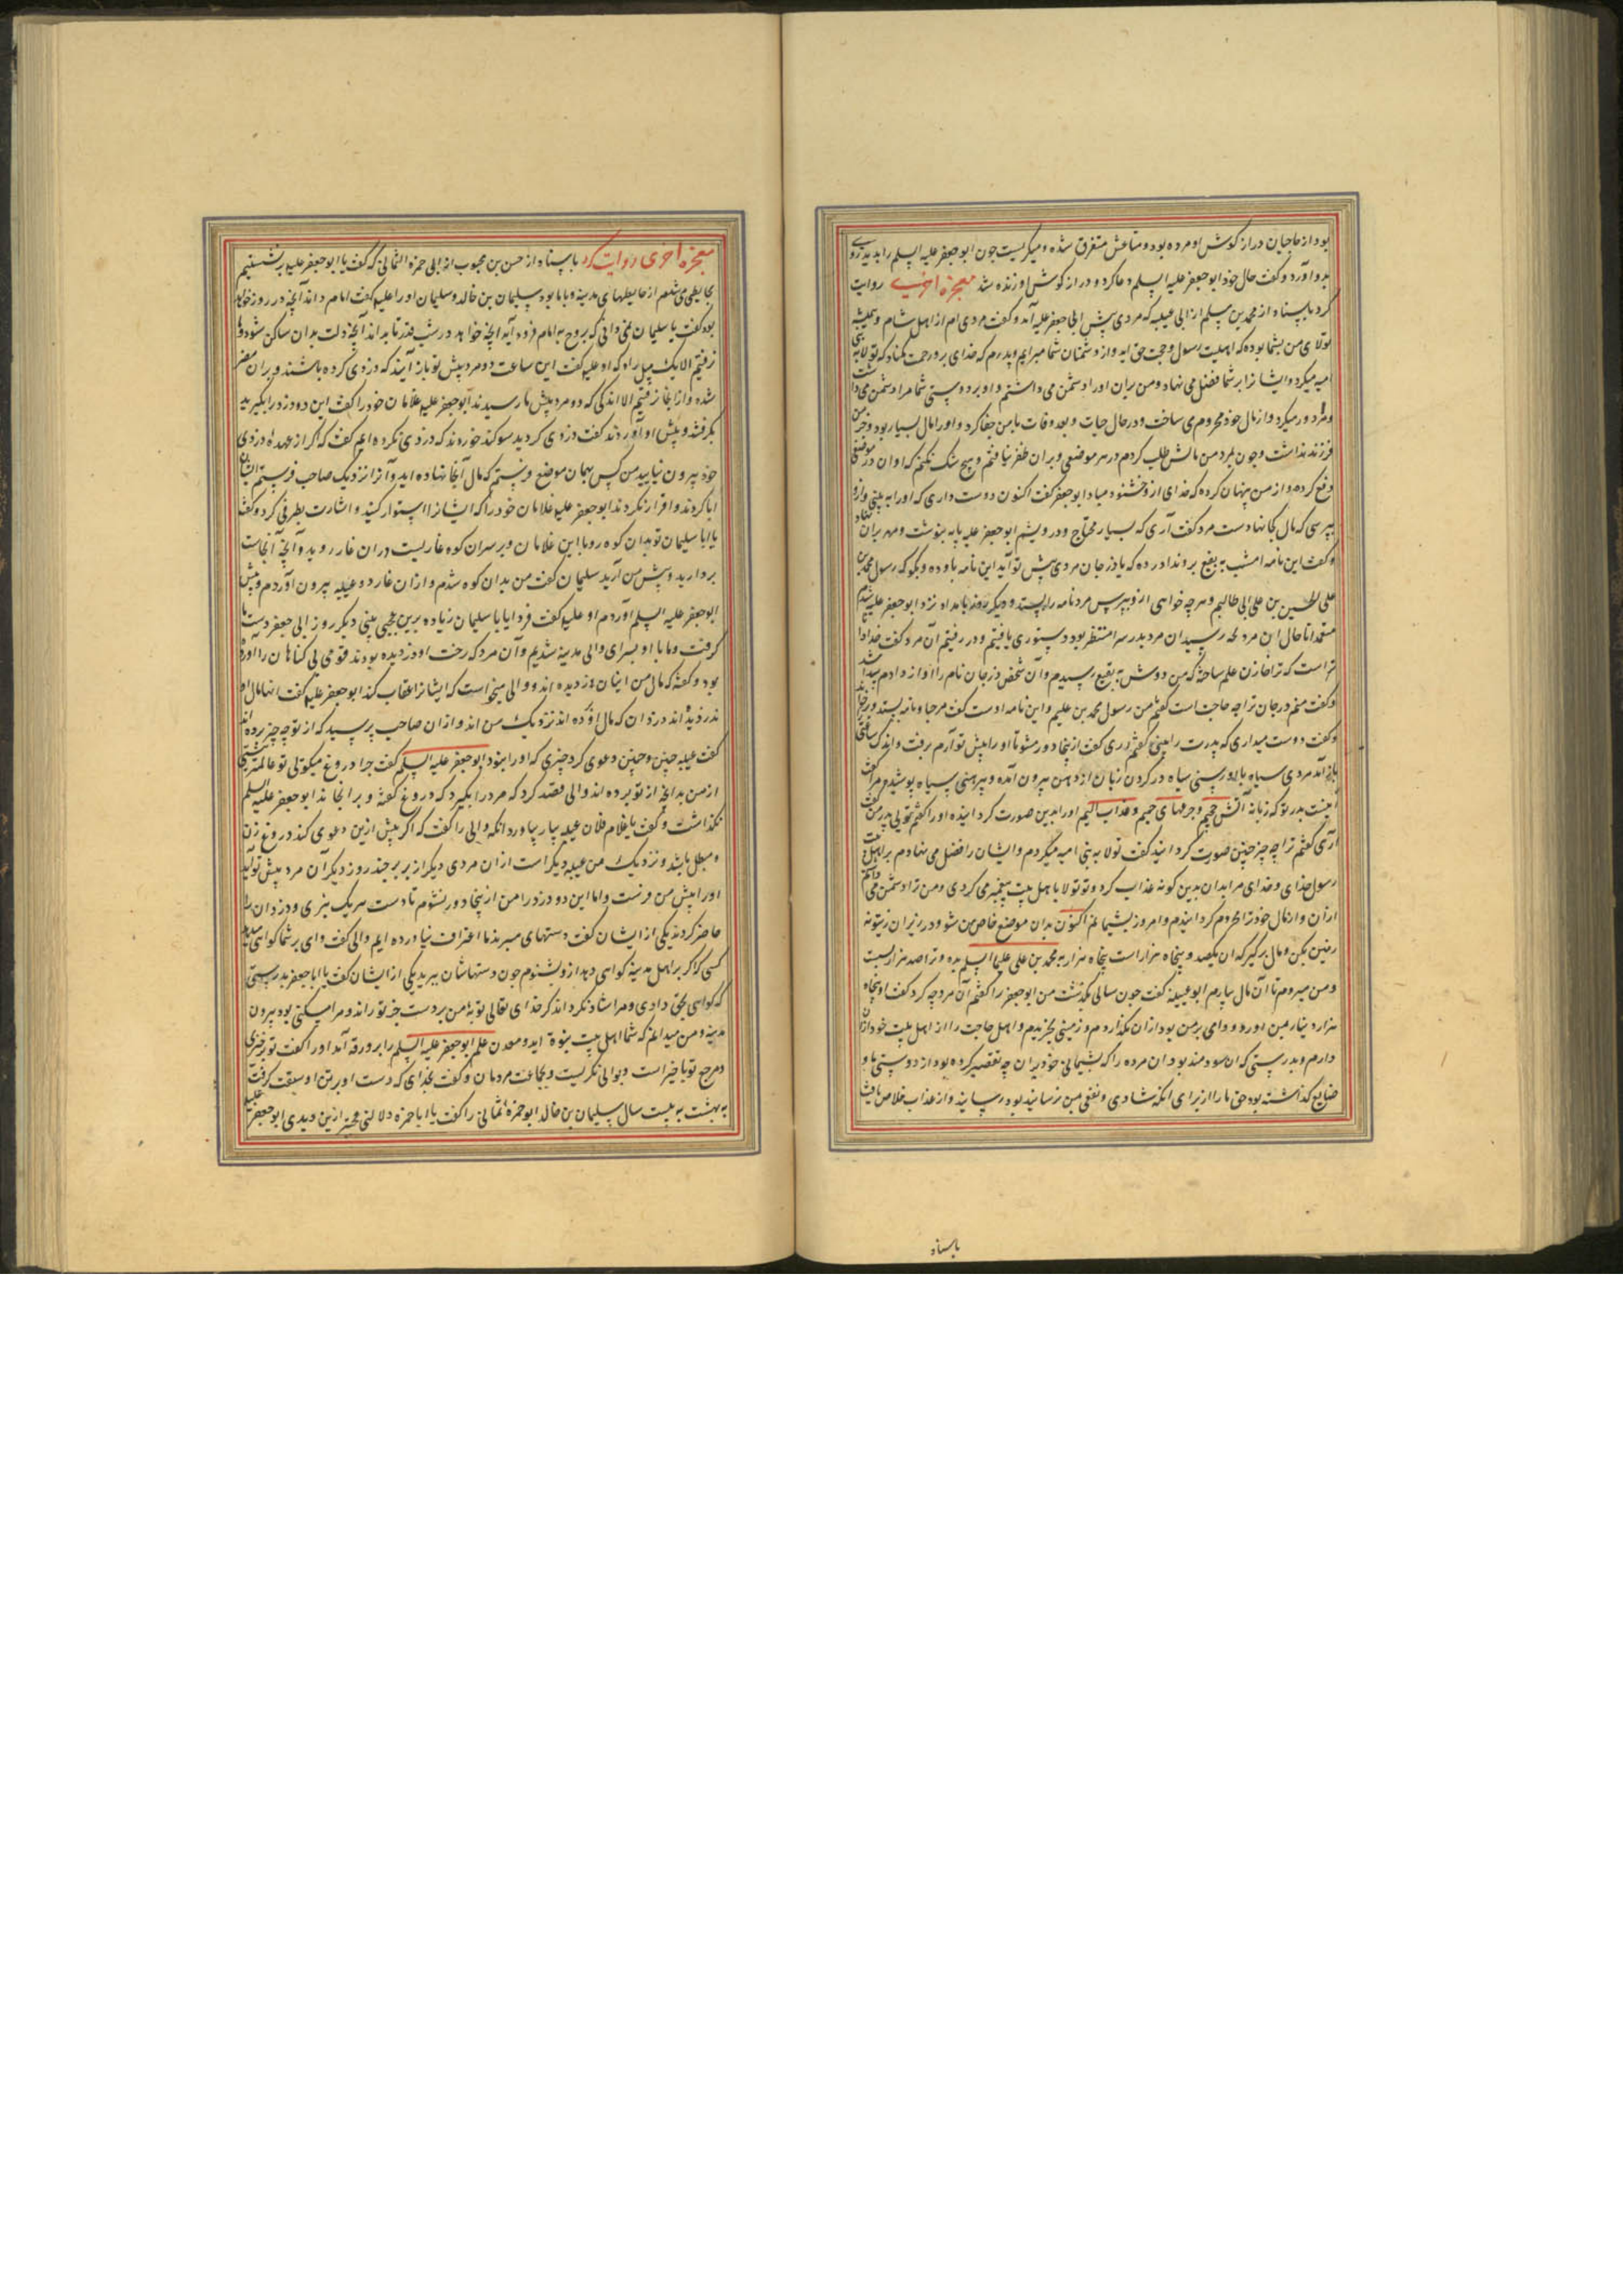 بود از حاجیان دراز کوش او مرده بود و متاعش متفرق شده و میکریست جون ابو جعفر علیه السلم را بدید روی
بدو آورد و کفت حال خود ابو جعفر علیه السلم دعا کرد و دراز کوش او زنده شد معجزه اخری روایت
کرد باسناد از محمد بن مسلم از ابی عیینه که مردی پیش ابی جعفر علیه آمد و کفت مردی ام از اهل شام و همیشه
تولای من بشما بوده که اهلبیت رسول و حجت حق اید و از دشمنان شما مبرایم و پدرم که خدای برو رحمت مکناد که تولا به بنی
امیه میکرد و ایشانرا بر شما فضل می نهاد و من بران او را دشمن می داشتم و او بر دوستی شما مرا دشمن می داشت
و مرا دور میکرد و از مال خود محروم می ساخت و در حال حیات و بعد وفات با من جفا کرد و او را مال بسیار بود و جز من
فرزند نداشت و جون بمرد من مالش طلب کردم در هر موضعی و بران ظفر نیافتم و هیچ شک نکنم که او ان در موضعی
دفع کرده و از من پنهان کرده که خدای از و خشنود مباد ابو جعفر کفت اکنون دوست داری که او را به بینی و از و
بپرسی که مال کجا نهادست مرد کفت آری که بسیار محتاج و درویشم ابو جعفر علیه نامه بنوشت و مهر بران نهاد
و کفت این نامه امشب به بقیع بر و ندا در ده که یا درجان مردی پیش تو آید این نامه باو ده و بکو که رسول محمد بن
علی الحسین بن علی ابی طالبم و هر چه خواهی از و بپرس مرد نامه را بستد و دیکر روز بامداد نزد ابو جعفر علیه شدم
متعمدا تا حال ان مرد بدر سرا منتظر بود دستوری یافتیم و در رفتیم آن مرد کفت خدا دا
تر است که ترا خازن علم ساخته که من دوش به بقیع رسیدم و آن شخص درجان نام را اواز دادم پیدا شد
و کفت منم درجان ترا چه حاجت است کفتم من رسول محمد بن علیم و این نامه اوست کفت مرحبا و نامه بستد و برخواند
و کفت دوست میداری که پدرت را بینی کفتم آری کفت ازینجا دور مشو تا او را پیش تو آرم برفت و اندک ساعتی
باز آمد مردی سیاه با او رسنی سیاه در کردن زبان از دهن بیرون آمده و پیرهنی سیاه پوشیده مرا کفت
اینست پدر تو که زبانه آتش جحیم و جرعهای حمیم و عذاب الیم او را بدین صورت کردانیده او را کفتم توئی پدر من کفت
آری کفتم ترا چه چیز چنین صورت کردانید کفت تولا به بنی امیه میکردم و ایشان را فضل می نهادم بر اهل بیت
رسول خدای و خدای مرا بدان بدین کونه عذاب کرد و تو تولا با هل بیت پیغمبر می کردی و من ترا دشمن می داشتم
ازان و از مال خود ترا محروم کردانیدم و امروز پشیمانم اکنون بدان موضع خاص من شو و در زیر ان زیتونه
زمین بکن و مال برکیر که ان یکصد و پنجاه هزار است پنجاه هزار به محمد بن علی علیما السلم بده و ترا صد هزار بست
و من میروم تا آن مال بیارم ابو عیینه کفت جون سالی بکذشت من ابو جعفر را کفتم آن مرد چه کرد کفت او پنجاه
هزار دینار بمن آورد و وامی بر من بود ازان بکذاردم و زمینی بخریدم و اهل حاجت را از اهل بیت خود ازان
دارم و بدرستی که ان سودمند بود ان مرده را که پشیمانی خود بران چه تقصیر کرده بود از دوستی ما و
ضایع کذاشته بود حق ما را از برای انکه شادی و نفعی بمن رسانیده بود و از عذاب خلاص یافت
باسناد
معجزه اخری روایت کرد باسناد از حسن بن محبوب از ابی حمزه الثمالی که کفت با ابو جعفر علیه بر نشستیم
بحایطی می شدم از حایطهای مدینه و با ما بود سلیمان بن خالد و سلیمان او را علیه کفت امام داند آنچه در روز خواهد
بود کفت یا سلیمان نمی دانی که بروح به امام فرود آید انچه خواهد در شب قدر تا بداند آنچه دلت بدان ساکن شود و
نرفتیم الا یک میل راه که او علیه کفت این ساعت دو مرد پیش تو باز آیند که دزدی کرده باشند و بران مضر
شده و از انجا نرفتیم الا اندکی که دو مرد پیش ما رسیدند ابو جعفر علیه غلامان خود را کفت این دو دزد را بکیرید
بکرفتند و پیش او آوردند کفت دزدی کردید سوکند خوردند که دزدی نکرده ایم کفت که اکر از عهده دزدی
خود بیرون نیایید من کس بهمان موضع فرستم که مال آنجا نهاده اید و آنرا نزدیک صاحب فرستم ایشان
ابا کردند و اقرار نکردند ابو جعفر علیه غلامان خود را که ایشانرا استوار کنید و اشارت بطرفی کرد و کفت
یا ابا سلیمان تو بدان کوه رو با این غلامان و بر سر ان کوه غاریست دران غار روید و آنچه آنجاست
بردارید و پیش من آرید سلیمان کفت من بدان کوه شدم و ازان غار دو عیبه بیرون آوردم و پیش
ابو جعفر علیه السلم آوردم او علیه کفت فردا یا با سلیمان زیاده برین عجبی بینی دیکر روز ابی جعفر دست ما
کرفت و ما با او بسرای والی مدینه شدیم و آن مرد که رخت او دزدیده بودند قومی بی کناهان را آورده
بود و کفته که مال من اینان دزدیده اند و والی میخواست که ایشانرا عقاب کند ابو جعفر علیه کفت اینها مال او
ندزدیده اند دزدان که مال او برده اند نزدیک من اند و ازان صاحب پرسید که از تو چه چیز برده اند
کفت عیبه چنین و چنین و دعوی کرد چیزی که او را نبود ابو جعفر علیه السلم کفت چرا دروغ میکوئی تو عالمتر نیستی
از من بدانچه از تو برده اند والی قصد کرد که مرد را بکیرد که دروغ کفته و برانجاند ابو جعفر علیه السلم
نکذاشت و کفت یا غلام فلان عیبه بیار بیاورد انکه والی را کفت که اکر بیش ازین دعوی کند دروغ زن
و مبطل باشد و نزدیک من عیبه دیکر است ازان مردی دیکر از بربر چند روز دیکر آن مرد پیش تو آید
او را پیش من فرست و اما این دو دزد را من ازینجا دور نشوم تا دست هر یک نبری و دزدان را
حاضر کردند یکی از ایشان کفت دستهای میبرند ما اعتراف نیاورده ایم والی کفت وای بر شما کواهی میدهد
کسی که اکر بر اهل مدینه کواهی دهد از و بشنوم جون دستهاشان ببرید یکی از ایشان کفت یا ابا جعفر بدرستی
که کواهی بحق دادی و مرا شاد نکرداند اکر خدای تعالی توبه من بر دست جز تو راند و مرا مسکنی بود بیرون
مدینه و من میدانم که شما اهل بیت نبوة اید و معدن علم ابو جعفر علیه السلم را برو رقه آمد او را کفت تو بر خیری
و مرجع تو با خیر است و بوالی نکریست و بجماعت مردمان و کفت بخدای که دست او برتن او سبقت کرفت
به بهشت به بیست سال سلیمان بن خالد ابو حمزه ثمالی را کفت یا ابا حمزه دلالتی عجبتر ازین دیدی ابو جعفر علیه